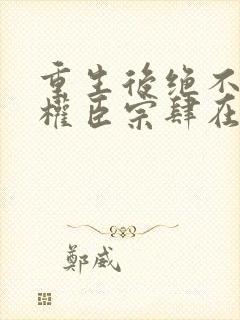 重生後绝不
權臣宗肆在
鄭威